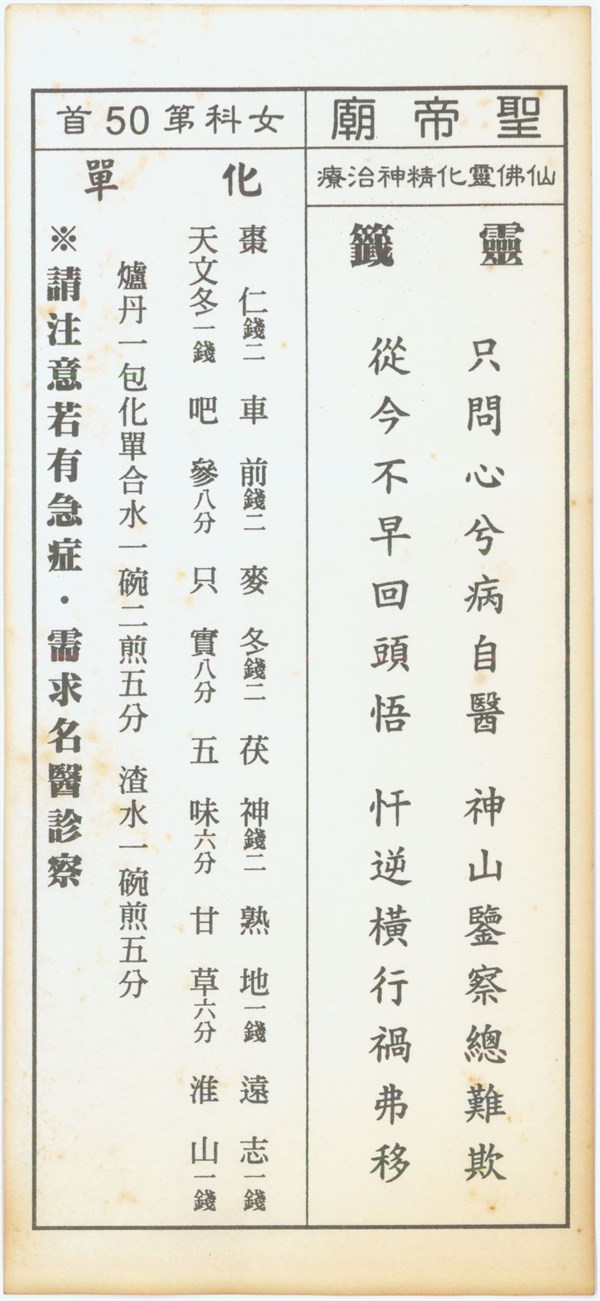 聖帝廟
仙佛靈化精神治療
靈籤
只問心兮病自醫 神山鑒察總難欺
從今不早回頭悟 忤逆橫行禍弗移
女科第50首
化單
棗仁二錢 車前二錢 麥冬二錢 茯神二錢 熟地一錢 遠志一錢
天文冬一錢 吧參八分 只實八分 五味六分 甘草六分 淮山一錢
爐丹一包化單合水一碗二煎五分 渣水一碗煎五分
※請注意若有急症・需求名醫診察